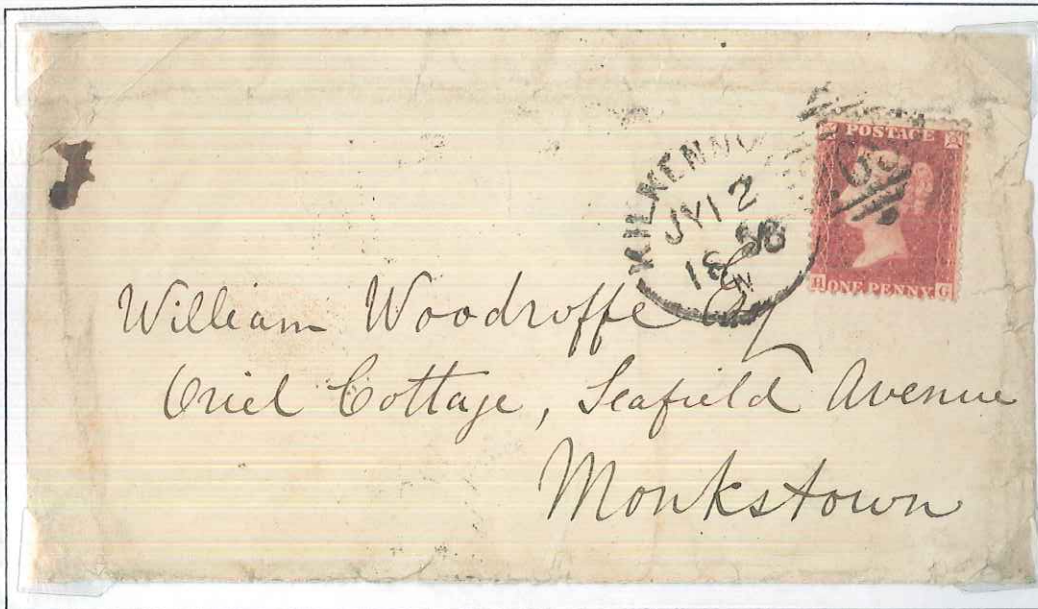 POSTAGE
KILKENNY
JY 12
1858
H ONE PENNY G
William Woodroffe Esq
Oriel Cottage, Seafield Avenue
Monkstown